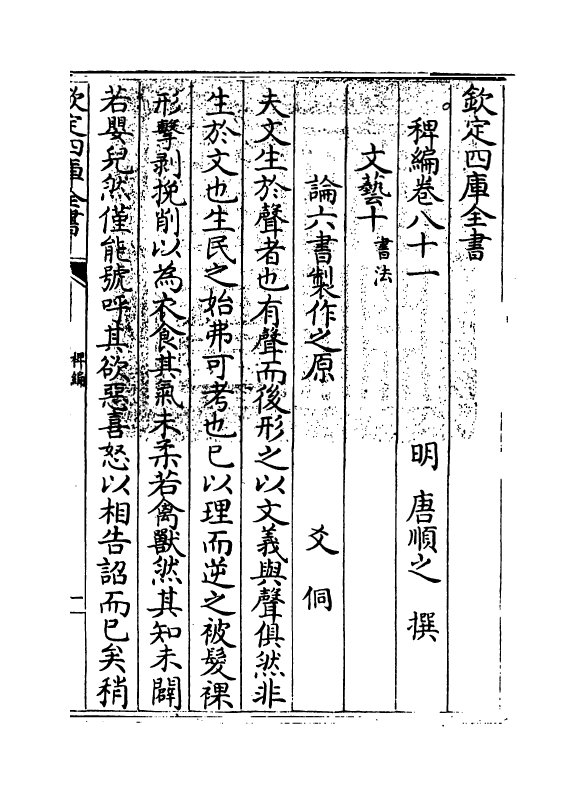 欽定四庫全書
稗編卷八十一
明 唐順之 撰
文藝十 書法
論六書製作之原
爻侗
夫文生於聲者也有聲而後形之以文義與聲俱然非
生於文也生民之始弗可考也已以理而逆之被髮裸
形擊剥挽削以為衣食其氣未柔若禽獸然其知未闢
若嬰兒然僅能號呼其欲惡喜怒以相告詔而已矣稍
欽定四庫全書
稗編
一